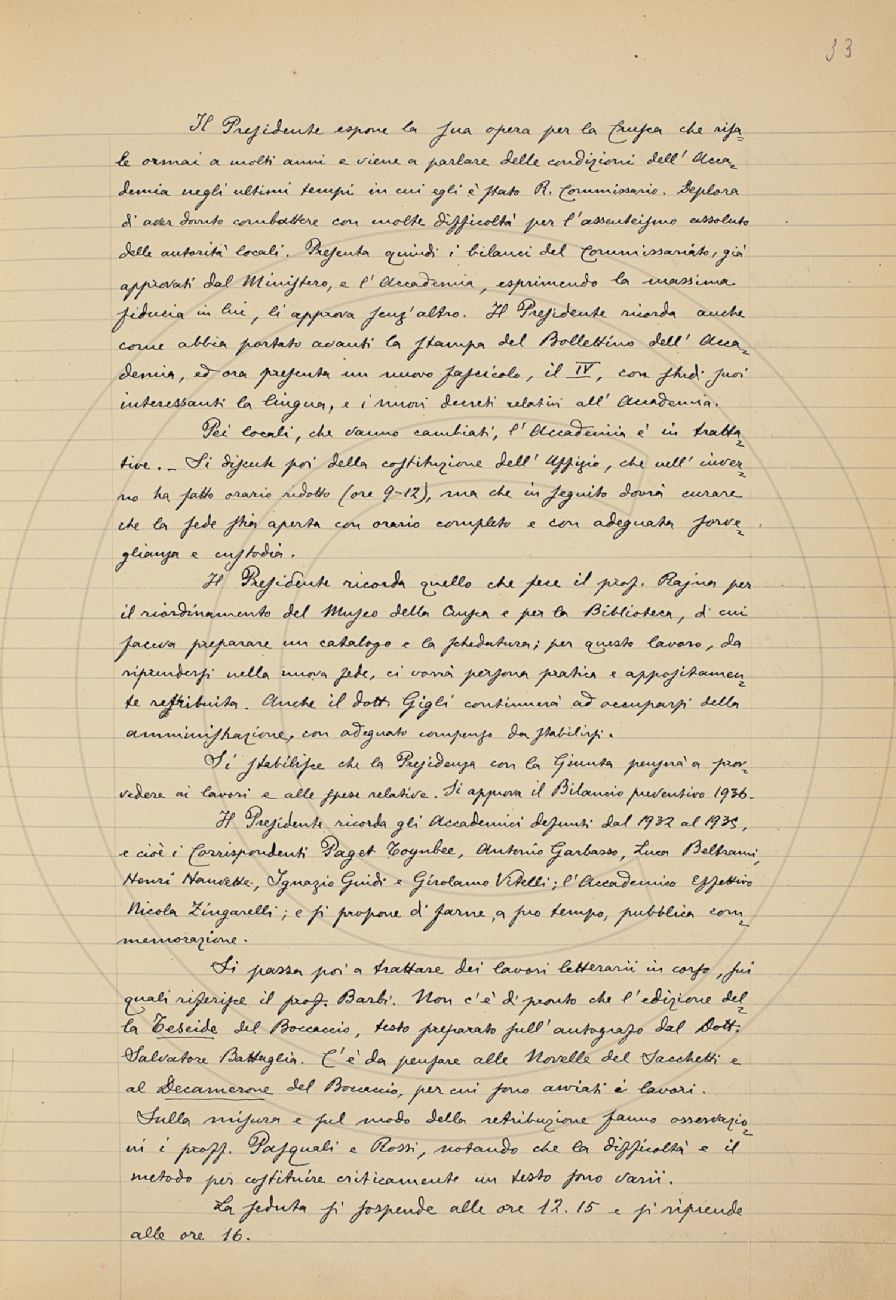 33
Il Presidente espone la sua opera per la Crusca che risa=
le ormai a molti anni e viene a parlare delle condizioni dell' Acca=
demia negli ultimi tempi in cui egli è stato R. Commissario. Deplora
di aver dovuto combattere con molte difficoltà per l'assenteismo assoluto
delle autorità locali. Presenta quindi i bilanci del Commissariato, già
approvati dal Ministero, e l' Accademia, esprimendo la massima
fiducia in lui, li approva senz'altro. Il Presidente ricorda anche
come abbia portato avanti la stampa del Bollettino dell' Acca=
demia, ed ora presenta un nuovo fascicolo, il IV, con studi suoi
interessanti la lingua, e i nuovi decreti relativi all' Accademia.
Pei locali, che vanno cambiati, l'Accademia è in tratta=
tive. _ Si discute poi della costituzione dell' Uffizio, che nell' inver=
no ha fatto orario ridotto (ore 9-12), ma che in seguito dovrà curare
che la sede stia aperta con orario completo e con adeguata sorve=
glianza e custodia.
Il Presidente ricorda quello che fece il prof. Rajna per
il riordinamento del Museo della Crusca e per la Biblioteca, di cui
faceva preparare un catalogo e la schedatura; per questo lavoro, da
riprendersi nella nuova sede, ci vorrà persona pratica e appositamen=
te retribuita. Anche il dott. Gigli continuerà ad occuparsi della
amministrazione, con adeguato compenso da stabilirsi.
Si stabilisce che la Presidenza con la Giunta penserà a prov=
vedere ai lavori e alle spese relative. Si approva il Bilancio preventivo 1936.
Il Presidente ricorda gli Accademici defunti dal 1932 al 1935,
e cioè i Corrispondenti Paget Toynbee, Antonio Garbasso, Luca Beltrami,
Henri Hauvette, Ignazio Guidi e Girolamo Vitelli; l'Accademico Effettivo
Nicola Zingarelli; e si propone di farne, a suo tempo, pubblica com=
memorazione.
Si passa poi a trattare dei lavori letterarii in corso, sui
quali riferisce il prof. Barbi. Non c'è di pronto che l'edizione del=
la Teseide del Boccaccio, testo preparato sull' autografo dal Dott.
Salvatore Battaglia. C'è da pensare alle Novelle del Sacchetti e
al Decamerone del Boccaccio, per cui sono avviati i lavori.
Sulla misura e sul modo della retribuzione fanno osservazio=
ni i proff. Pasquali e Rossi, notando che la difficoltà e il
metodo per costituire criticamente un testo sono varii.
La seduta si sospende alle ore 12.15 e si riprende
alle ore 16.